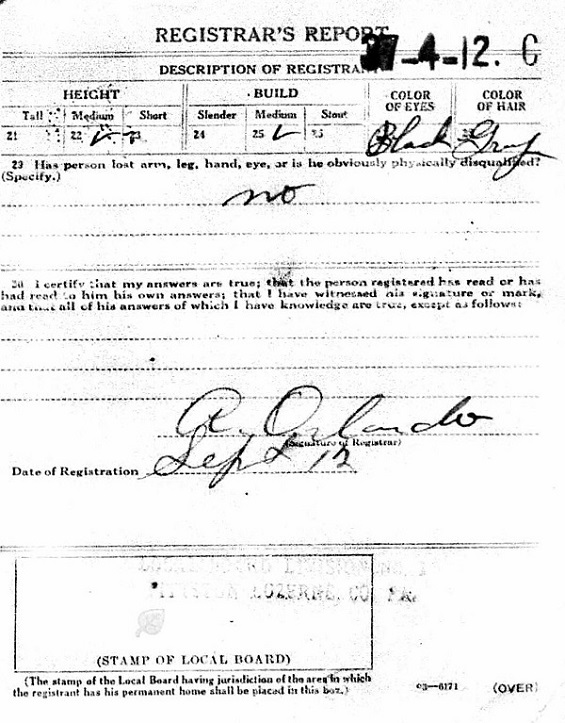 REGISTRAR'S REPORT
37-4-12. C
DESCRIPTION OF REGISTRANT
HEIGHT BUILD COLOR OF EYES COLOR OF HAIR
Tall Medium Short Slender Medium Stout
21 22 ✓ 23 24 25 ✓ 26 Black Gray
29 Has person lost arm, leg, hand, eye, or is he obviously physically disqualified?
(Specify.)
no
30 I certify that my answers are true; that the person registered has read or has
had read to him his own answers; that I have witnessed his signature or mark,
and that all of his answers of which I have knowledge are true, except as follows:
A. Orlando
(Signature of Registrar)
Date of Registration Sept 12
LOCAL BOARD DIVISION NO. 1
PITTSTON LUZERNE, CO. PA.
(STAMP OF LOCAL BOARD)
(The stamp of the Local Board having jurisdiction of the area in which
the registrant has his permanent home shall be placed in this box.)
03—6171 (OVER)